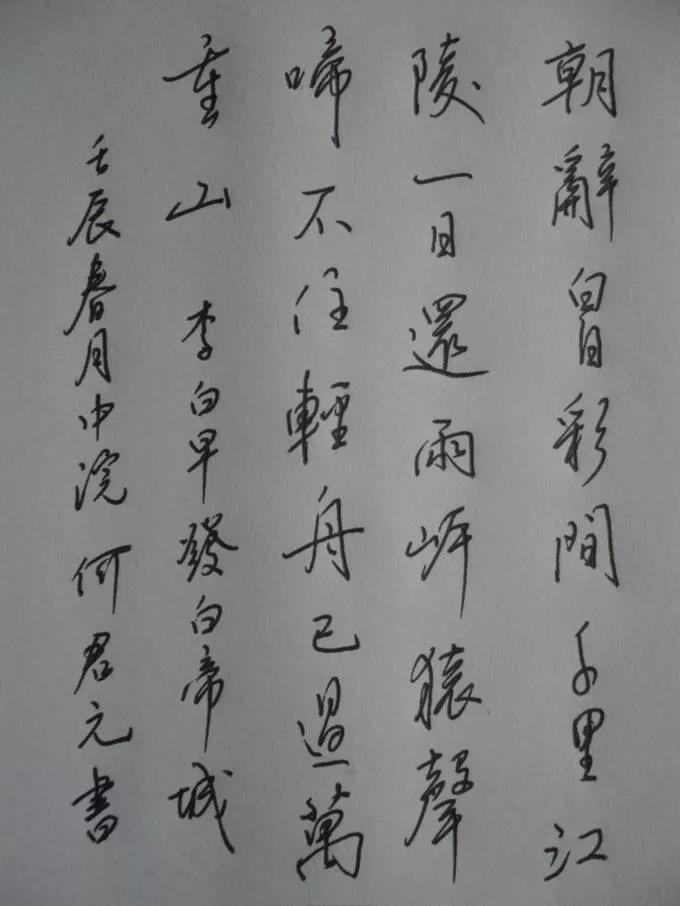 朝辭彩間千里江
陵一日還兩岸猿聲
啼不住輕舟已過萬
重山 李白早發白帝城
壬辰春月中浣 何君元書